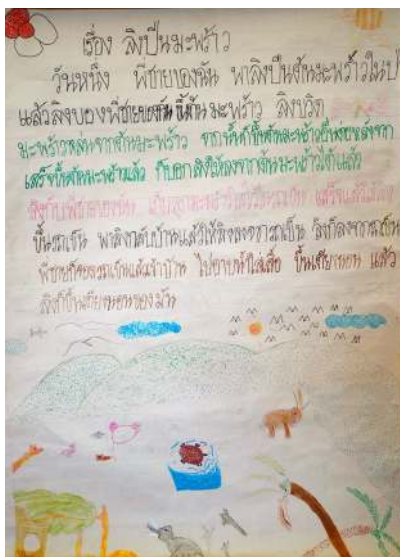 เรื่อง ลิงปีนมะพร้าว
วันหนึ่ง พี่ชายของฉัน พาลิงปีนต้นมะพร้าวในป
แล้วลิงของพี่ชายของฉัน ขึ้นต้นมะพร้าว ลิงบิด
มะพร้าวหล่นจากต้นมะพร้าว จากนั้นก็ขึ้นต้นมะพร้าว หลังจาก
เสร็จขึ้นต้นมะพร้าวแล้ว ก็บอกลิงให้ลงจากต้นมะพร้าวได้แล้ว
ลิงกับพี่ชายของฉัน เก็บลูกมะพร้าว เสร็จแล้ว
ขึ้นรถเข็น พาลิงกลับบ้านแล้วให้ลิงลงจากรถเข็น ลิงก็ลงจากรถเข็น
พี่ชายก็จอดรถเข็นแล้วเข้าบ้าน ไปอาบน้ำใส่เสื้อ ขึ้นเตียงนอน แล้ว
ลิงก็ขึ้นเตียงนอนของมัน